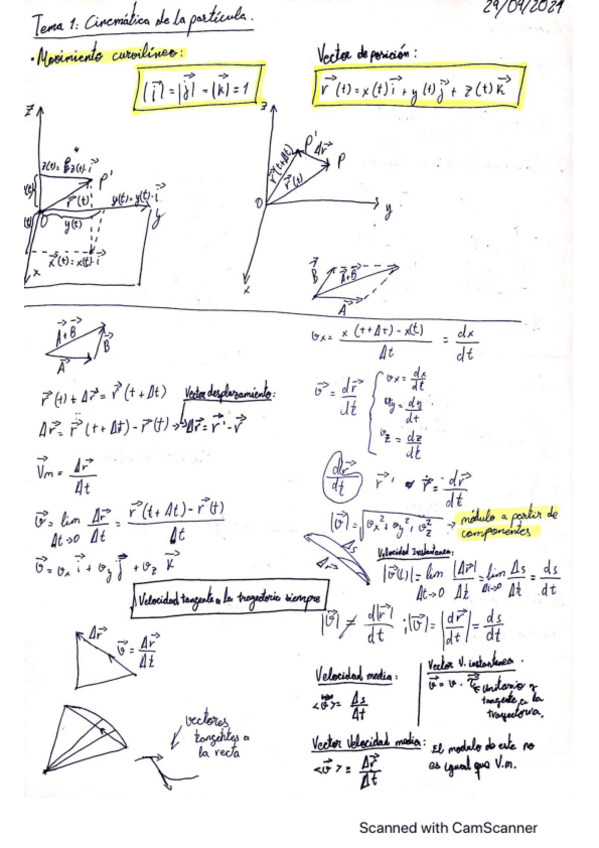 29/09/2021
Tema 1: Cinemática de la partícula.
· Movimiento curvilíneo:
|i⃗| = |j⃗| = |k⃗| = 1
Vector de posición:
r⃗(t) = x(t) i⃗ + y(t) j⃗ + z(t) k⃗
z
P'
r⃗(t)
O
y(t)
y
x⃗(t) = x(t)·i⃗
x
z
P'
Δr⃗
P
r⃗(t+Δt)
r⃗(t)
O
y
x
B⃗
A⃗+B⃗
A⃗
A⃗+B⃗
B⃗
A⃗
r⃗(t) + Δr⃗ = r⃗(t+Δt)
Vector desplazamiento:
Δr⃗ = r⃗(t+Δt) - r⃗(t) → Δr⃗ = r⃗' - r⃗
V⃗m = Δr⃗/Δt
v⃗ = lim Δt→0 Δr⃗/Δt = r⃗(t+Δt) - r⃗(t)/Δt
v⃗ = vx i⃗ + vy j⃗ + vz k⃗
Velocidad tangente a la trayectoria siempre
Δr⃗
v⃗ = Δr⃗/Δt
vectores
tangentes a
la recta
vx = x(t+Δt) - x(t)/Δt = dx/dt
v⃗ = dr⃗/dt
vx = dx/dt
vy = dy/dt
vz = dz/dt
dr⃗/dt r⃗' r⃗̇ = dr⃗/dt
|v⃗| = √vx² + vy² + vz² → módulo a partir de
componentes
Δs
Velocidad Instantánea:
|v⃗(t)| = lim Δt→0 |Δr⃗|/Δt = lim Δt→0 Δs/Δt = ds/dt
|v⃗| ≠ d|r⃗|/dt ; |v⃗| = |dr⃗/dt| = ds/dt
Velocidad media:
<v> = Δs/Δt
Vector V. instantánea.
v⃗ = v · τ⃗
Unitario y
tangente a la
trayectoria.
Vector Velocidad media:
<v⃗> = Δr⃗/Δt
El modulo de este no
es igual que V.m.
Scanned with CamScanner